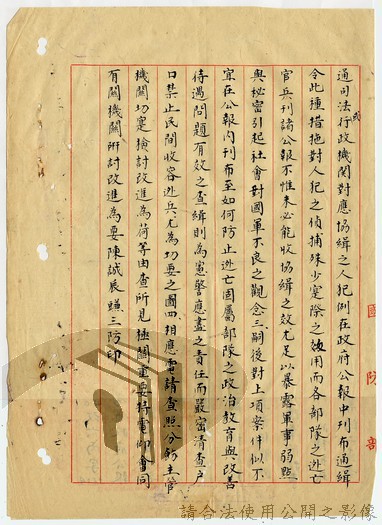 通司法行政機關對應協緝之人犯例在政府公報中刊布通緝
或
令此種措施對人犯之偵捕殊少實際之效用而各部隊之逃亡
官兵刊諸公報不惟未必能收協緝之效尤足以暴露軍事弱點
與秘密引起社會對國軍不良之觀念三、嗣後對上項案件似不
宜在公報內刊布至如何防止逃亡固屬部隊之政治教育與改善
待遇問題有效之查緝則為憲警應盡之責任而嚴密清查戶
口禁止民間收容逃兵尤為切要之圖四、相應電請查照分飭主管
機關切實檢討改進為荷等由查所見極關重要特電仰會同
有關機關研討改進為要陳誠辰 三防印
國防部
請合法使用公開之影像